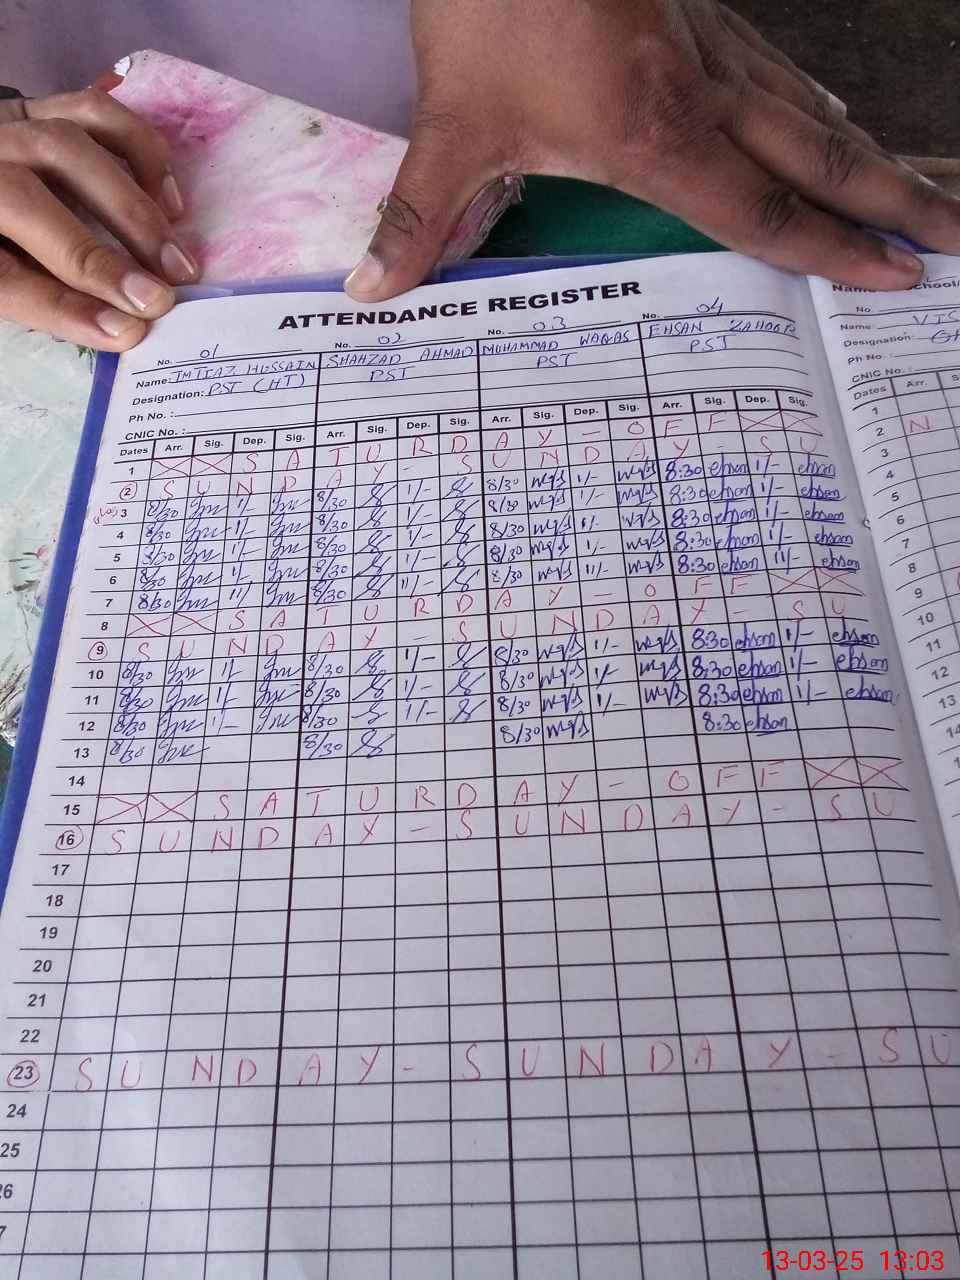 ATTENDANCE REGISTER
No. 01 No. 02 No. 03 No. 04
Name: IMTIAZ HUSSAIN SHAHZAD AHMAD MUHAMMAD WAQAS EHSAN ZAHOOR
Designation: PST (HT) PST PST PST
Ph No. :
CNIC No. :
Dates Arr. Sig. Dep. Sig. Arr. Sig. Dep. Sig. Arr. Sig. Dep. Sig. Arr. Sig. Dep. Sig.
1 S A T U R D A Y - O F F
2 S U N D A Y - S U N D A Y - S U
3 8/30 1/- 8/30 1/- 8/30 1/- 8:30 ehsan 1/- ehsan
4 8/30 1/- 8/30 1/- 8/30 1/- 8:30 ehsan 1/- ehsan
5 8/30 1/- 8/30 1/- 8/30 1/- 8:30 ehsan 1/- ehsan
6 8/30 1/- 8/30 1/- 8/30 1/- 8:30 ehsan 1/- ehsan
7 8/30 11/- 8/30 11/- 8/30 11/- 8:30 ehsan 11/- ehsan
8 S A T U R D A Y - O F F
9 S U N D A Y - S U N D A Y - S U
10 8/30 1/- 8/30 1/- 8/30 1/- 8:30 ehsan 1/- ehsan
11 8/30 1/- 8/30 1/- 8/30 1/- 8:30 ehsan 1/- ehsan
12 8/30 1/- 8/30 1/- 8/30 1/- 8:30 ehsan 1/- ehsan
13 8/30 8/30 8/30 8:30 ehsan
14
15 S A T U R D A Y - O F F
16 S U N D A Y - S U N D A Y - S U
17
18
19
20
21
22
23 S U N D A Y - S U N D A Y - S U
24
25
26
7
No.
Name:
Designation:
Ph No. :
CNIC No. :
Dates Arr.
1
2 N
3
4
5
6
7
8
9
10
11
12
13
13-03-25 13:03